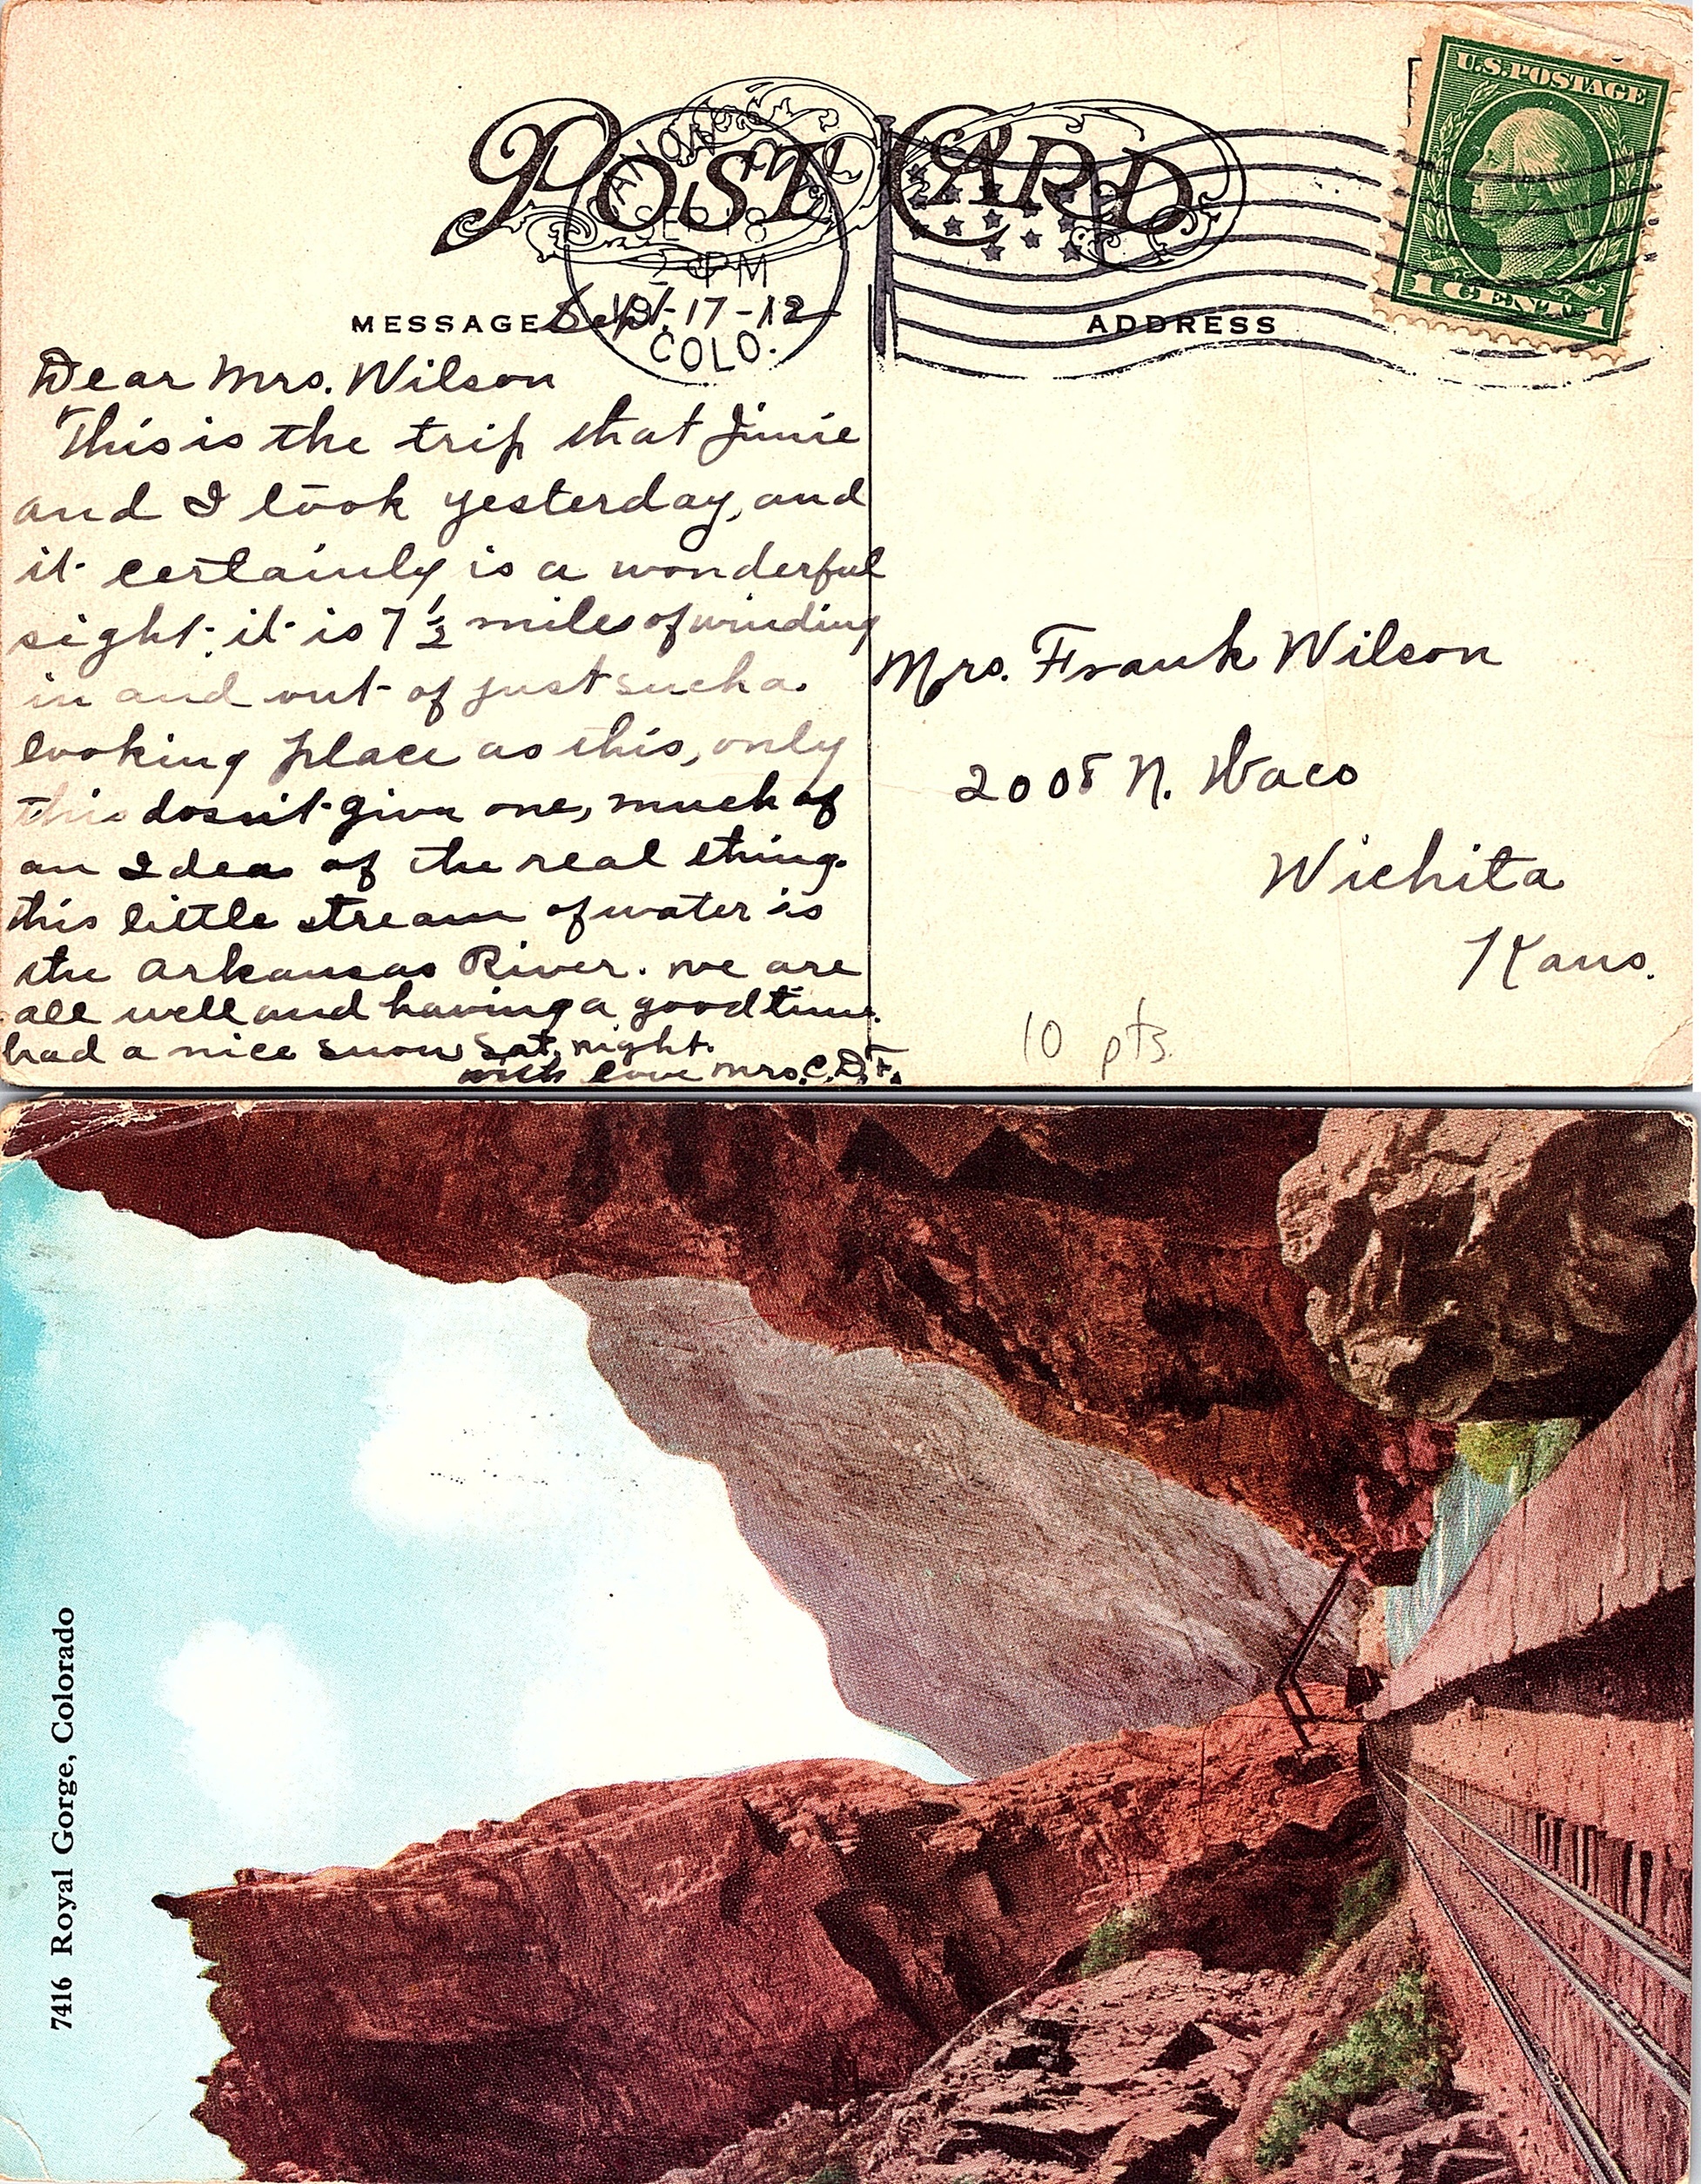 POST CARD
U.S. POSTAGE
1 CENT 1
SEP 18
2 PM
COLO.
MESSAGE
Sept-17-12
ADDRESS
Dear Mrs. Wilson
This is the trip that Jinnie
and I took yesterday, and
it certainly is a wonderful
sight. it is 7 1/2 miles of winding
in and out of just such a
looking place as this, only
this dosn't give one, much of
an Idea of the real thing.
this little stream of water is
the Arkansas River. we are
all well and having a good time.
had a nice snow Sat. night.
with love Mrs. C.D.F.
Mrs. Frank Wilson
2008 N. Waco
Wichita
Kans.
10 pts
7416 Royal Gorge, Colorado